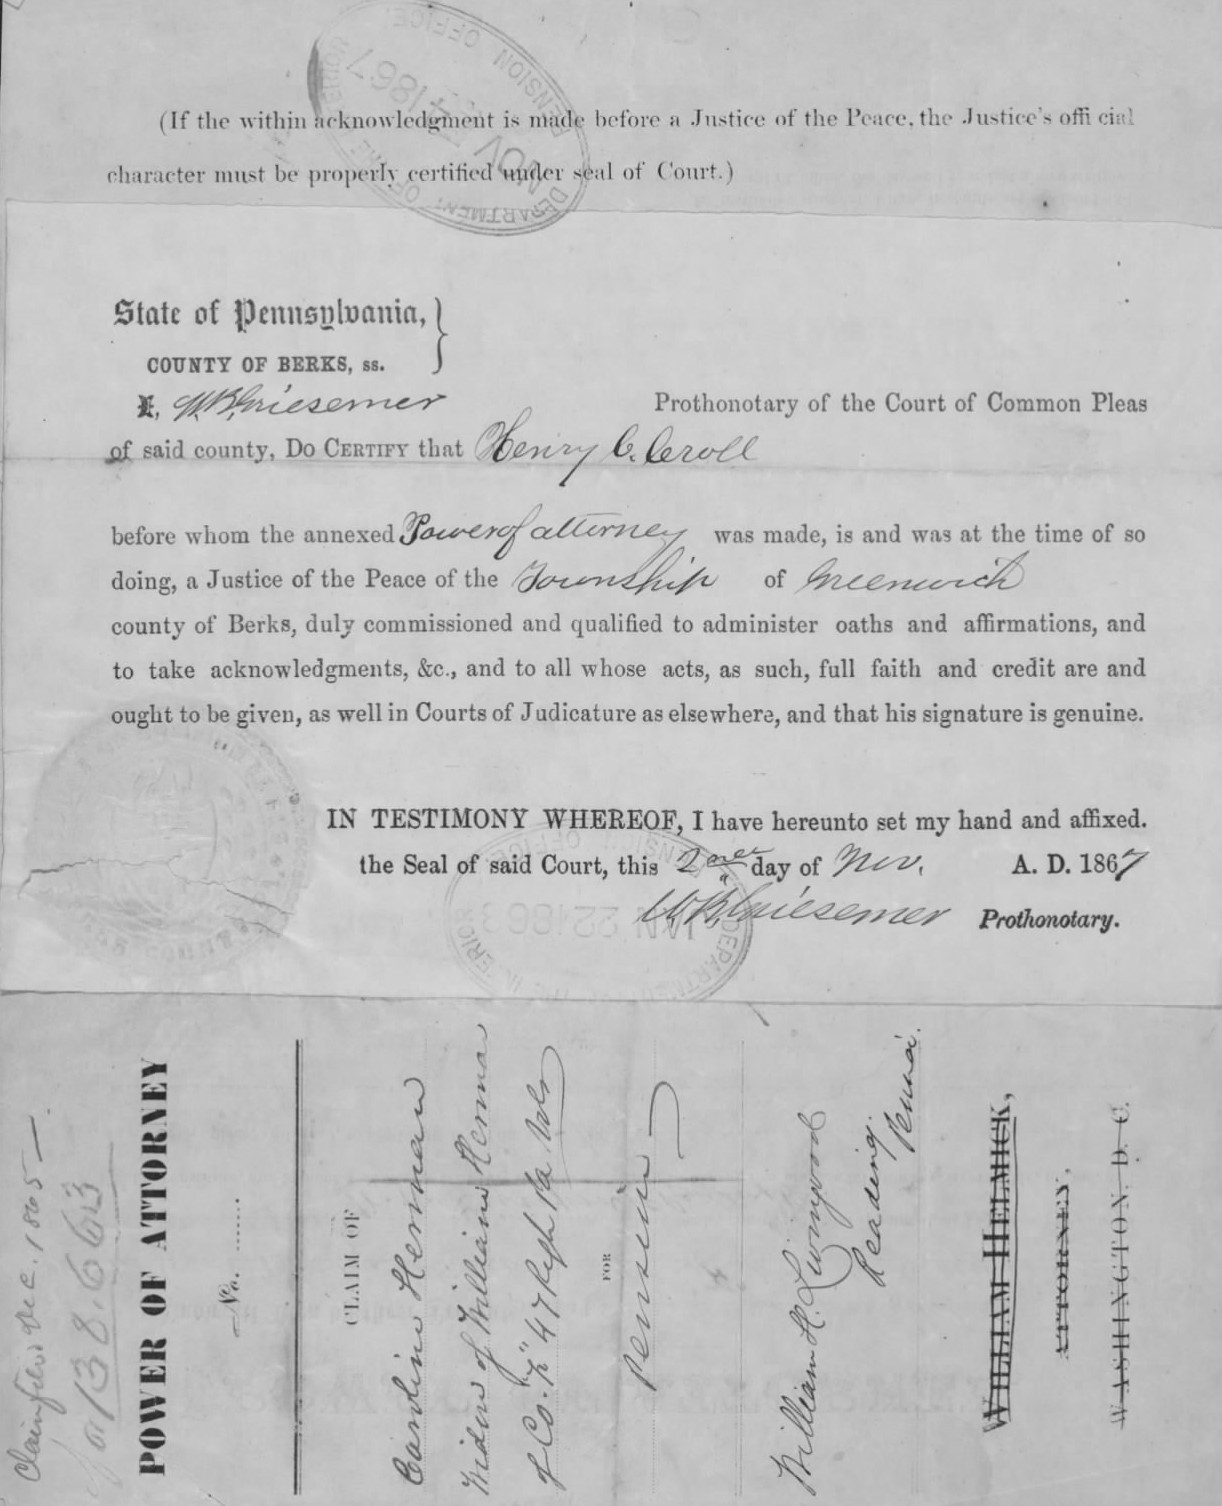 (If the within acknowledgment is made before a Justice of the Peace, the Justice's offi cial
character must be properly certified under seal of Court.)
PENSION OFFICE.
NOV 4 1867
DEPARTMENT OF THE
State of Pennsylvania,
COUNTY OF BERKS, ss.
I, W.B. Griesemer Prothonotary of the Court of Common Pleas
of said county, DO CERTIFY that Henry C. Croll
before whom the annexed Power of attorney was made, is and was at the time of so
doing, a Justice of the Peace of the Township of Greenwich
county of Berks, duly commissioned and qualified to administer oaths and affirmations, and
to take acknowledgments, &c., and to all whose acts, as such, full faith and credit are and
ought to be given, as well in Courts of Judicature as elsewhere, and that his signature is genuine.
IN TESTIMONY WHEREOF, I have hereunto set my hand and affixed.
the Seal of said Court, this 2nd day of Nov. A. D. 1867
W.B. Griesemer Prothonotary.
PENSION OFFICE
JAN 22 1868
DEPARTMENT OF THE INTERIOR
Claim filed Dec. 1865
138.663
POWER OF ATTORNEY
No. ......
CLAIM OF
Caroline Herman
Widow of William Herman
of Co. 47 Regt Pa Vols
FOR
Pension
William H. Livingood
Reading
Penna.
WILLIAM HELMICK,
ATTORNEY,
WASHINGTON. D. C.